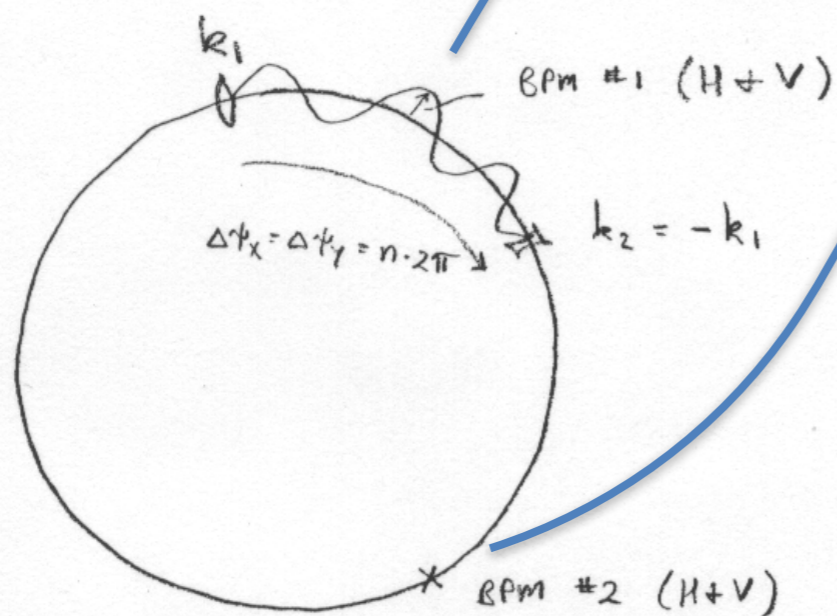 k₁
BPM #1 (H + V)
Δψₓ = Δψᵧ = n·2π
k₂ = -k₁
BPM #2 (H + V)